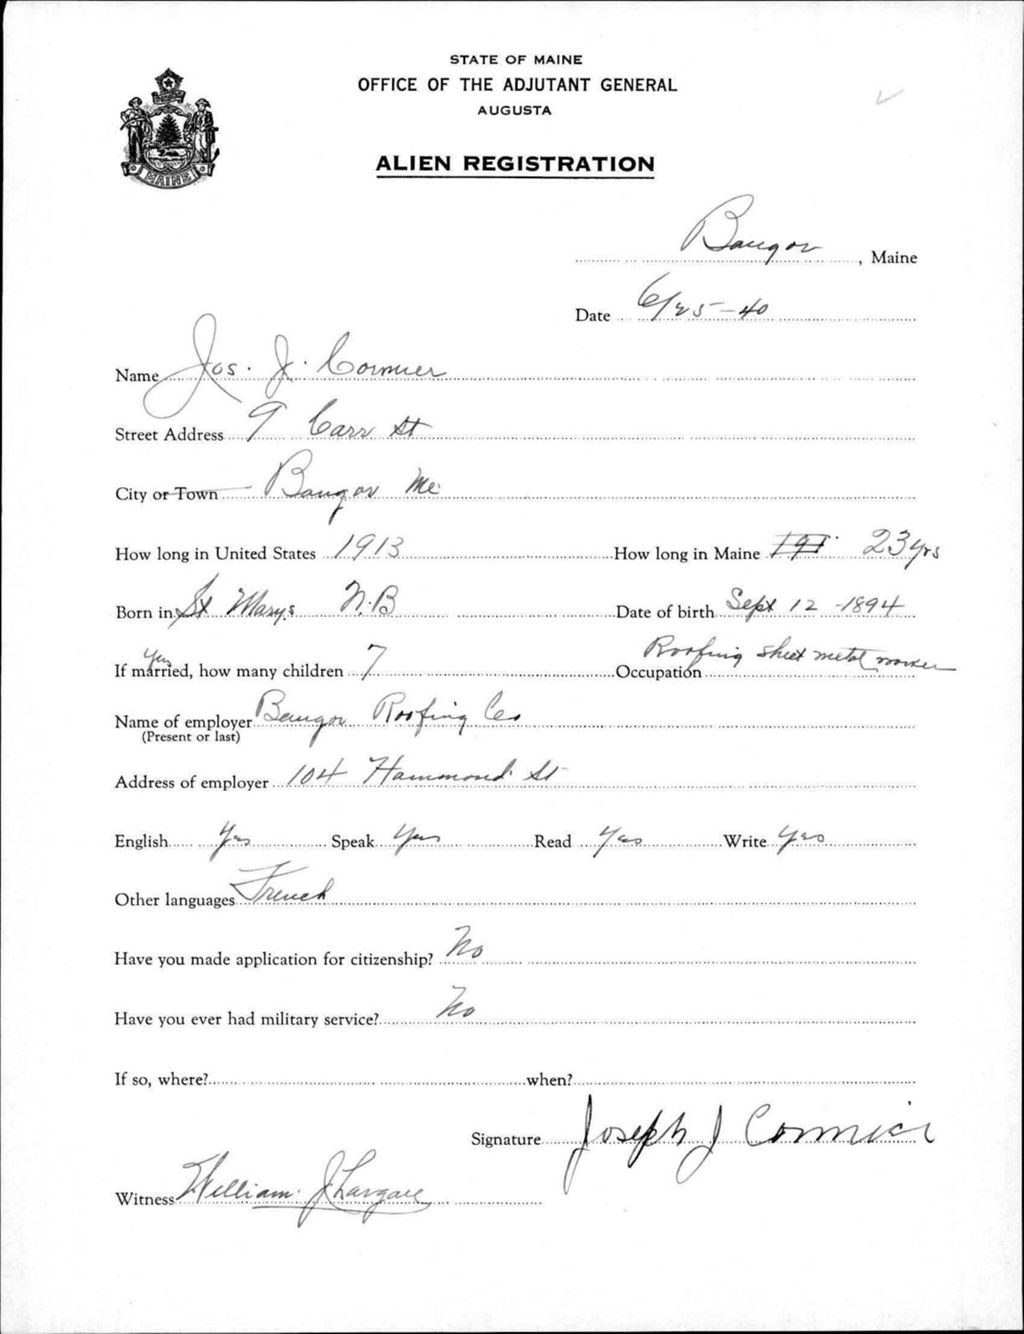 STATE OF MAINE
OFFICE OF THE ADJUTANT GENERAL
AUGUSTA
ALIEN REGISTRATION
MAINE
Bangor, Maine
Date 6/25-40
Name Jos. J. Cormier
Street Address 9 Carr St
City or Town Bangor Me.
How long in United States 1913 How long in Maine 23 yrs
Born in St Marys N.B Date of birth Sept 12 -1894
If married, how many children 7 Occupation Roofing sheet metal worker
Yes
Name of employer Bangor Roofing Co
(Present or last)
Address of employer 104 Hammond St
English Yes Speak Yes Read Yes Write Yes
Other languages French
Have you made application for citizenship? No
Have you ever had military service? No
If so, where? when?
Signature Joseph J Cormier
Witness William J